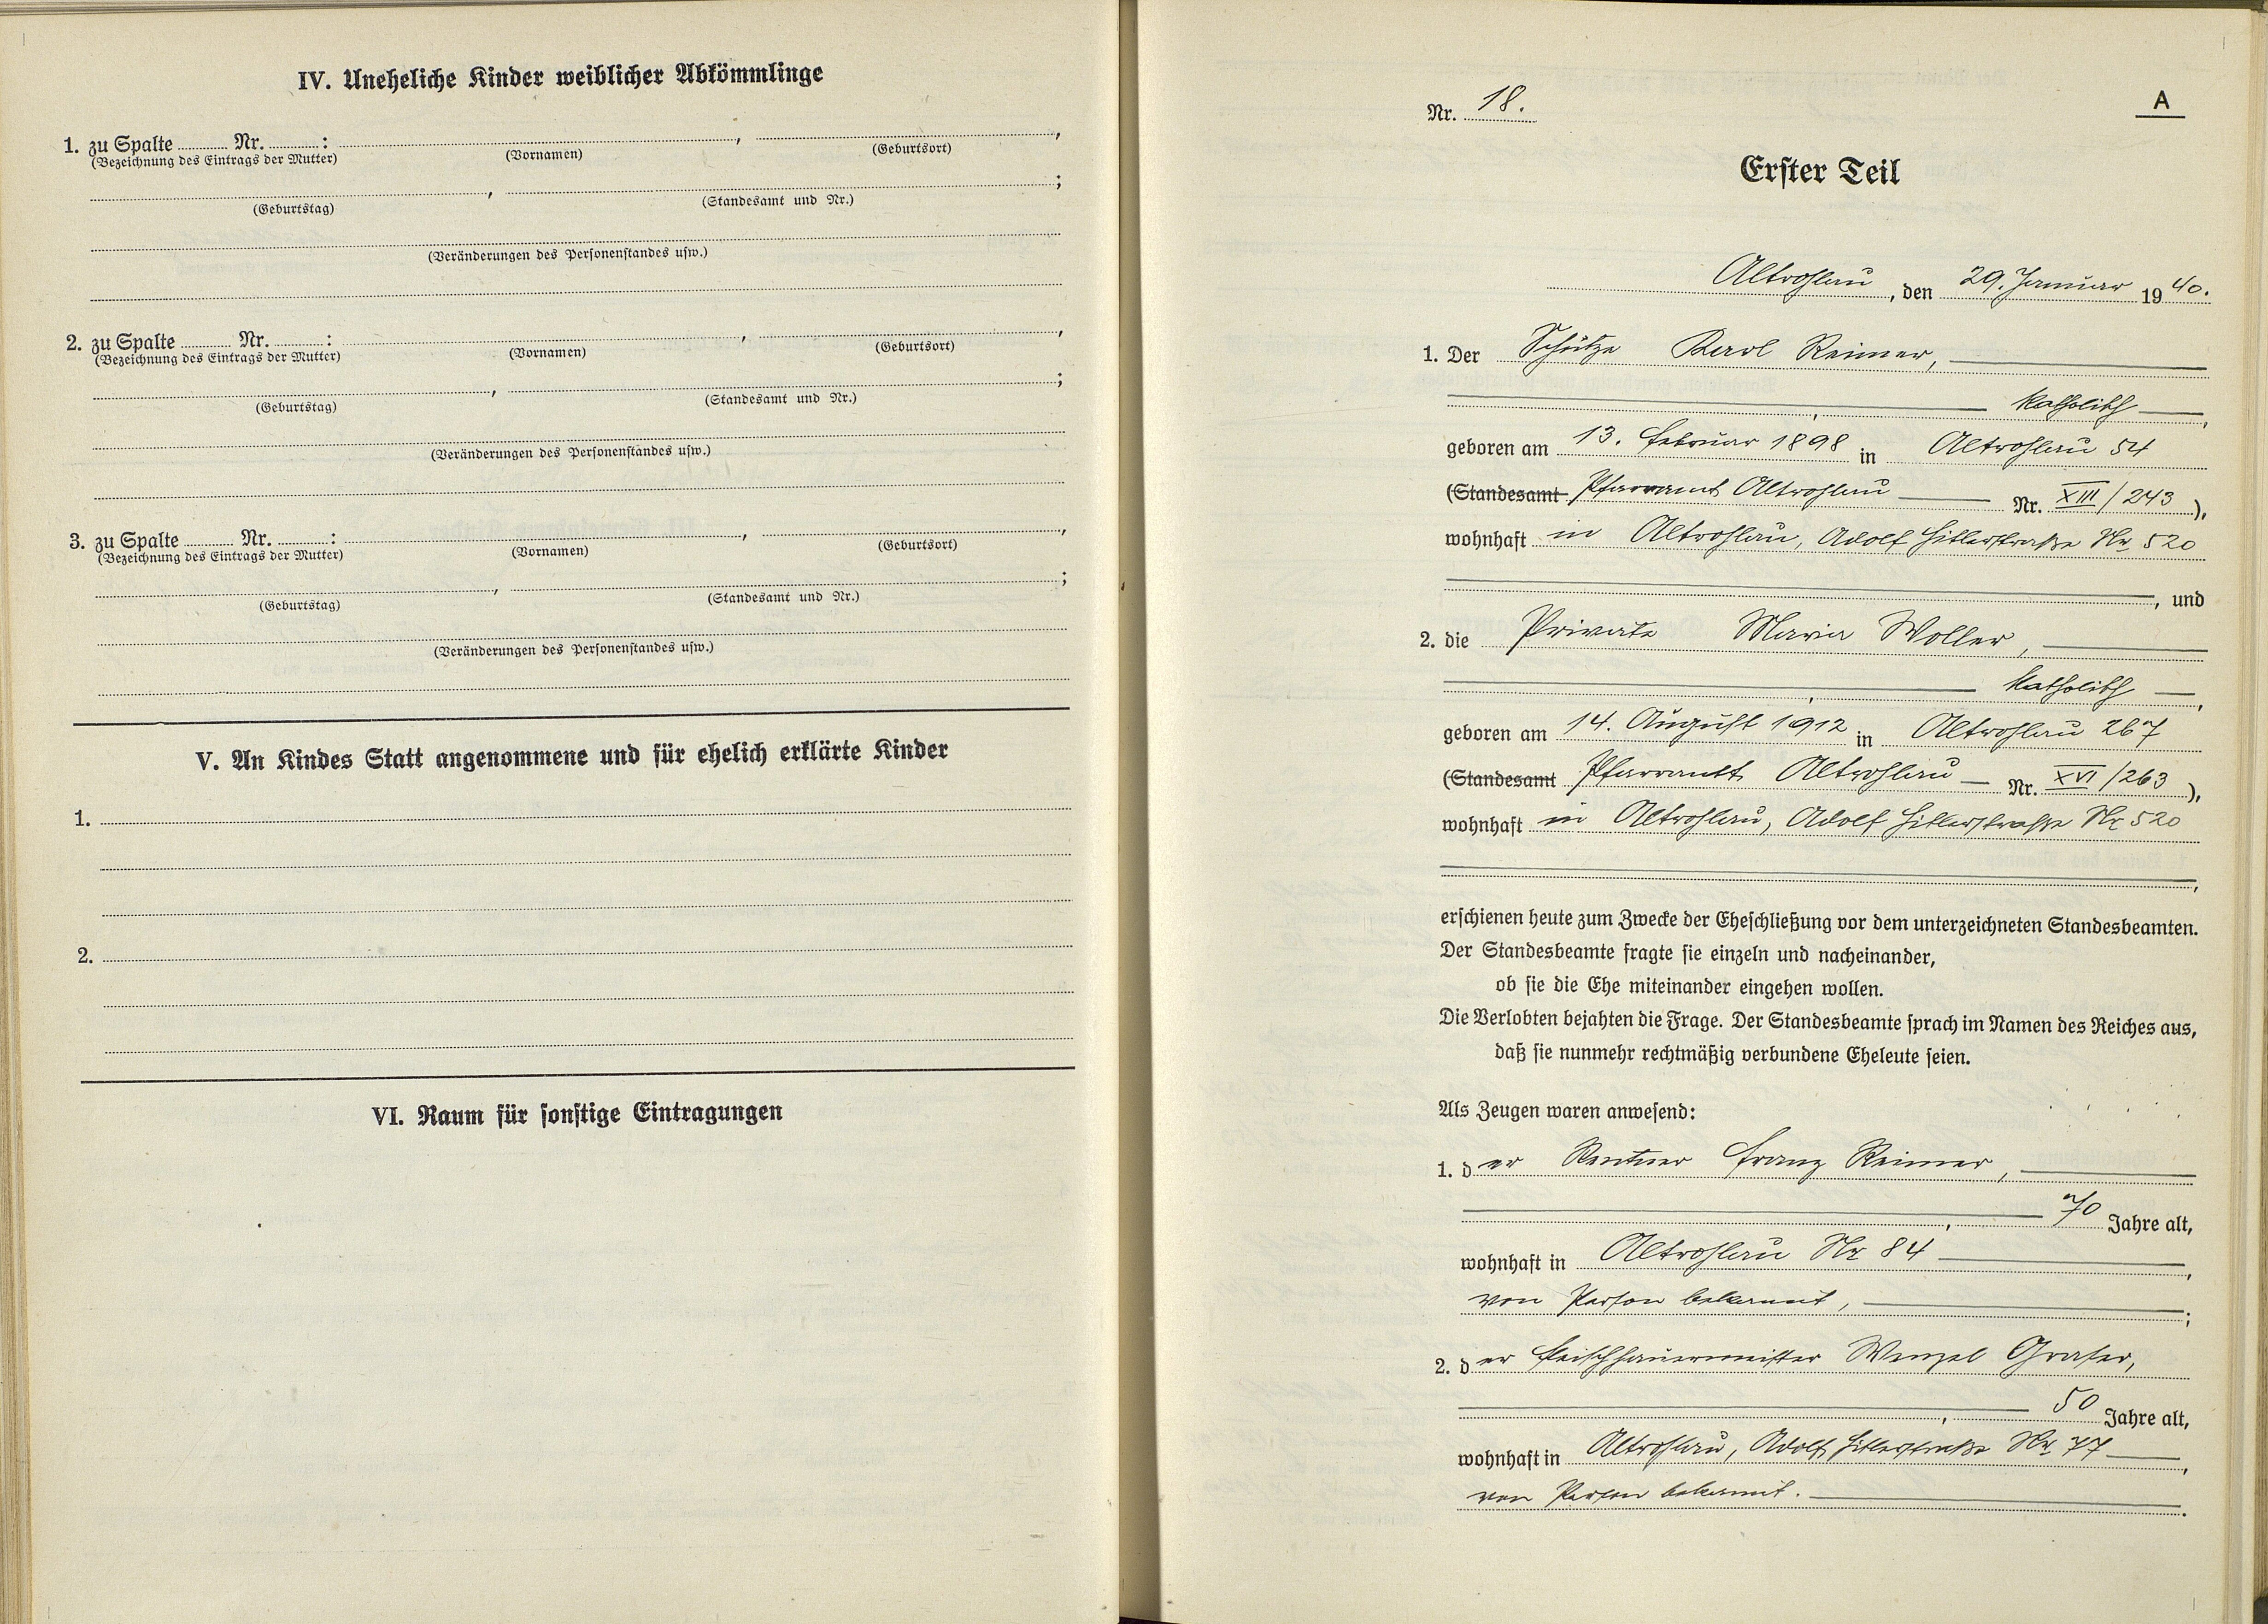 IV. Uneheliche Kinder weiblicher Abkömmlinge
1. zu Spalte ........ Nr. ........ : ........, ........,
(Bezeichnung des Eintrags der Mutter) (Vornamen) (Geburtsort)
........, ........;
(Geburtstag) (Standesamt und Nr.)
(Veränderungen des Personenstandes usw.)
2. zu Spalte ........ Nr. ........ : ........, ........,
(Bezeichnung des Eintrags der Mutter) (Vornamen) (Geburtsort)
........, ........;
(Geburtstag) (Standesamt und Nr.)
(Veränderungen des Personenstandes usw.)
3. zu Spalte ........ Nr. ........ : ........, ........,
(Bezeichnung des Eintrags der Mutter) (Vornamen) (Geburtsort)
........, ........;
(Geburtstag) (Standesamt und Nr.)
(Veränderungen des Personenstandes usw.)
V. An Kindes Statt angenommene und für ehelich erklärte Kinder
1.
2.
VI. Raum für sonstige Eintragungen
A
Nr. 18.
Erster Teil
Altrohlau, den 29. Januar 1940.
1. Der Schütze Karl Reimer,
katholisch,
geboren am 13. Februar 1898 in Altrohlau 54
(Standesamt Pfarramt Altrohlau Nr. XIII/243),
wohnhaft in Altrohlau, Adolf Hitlerstraße Nr 520
, und
2. die Private Maria Woller,
katholisch,
geboren am 14. August 1912 in Altrohlau 267
(Standesamt Pfarramt Altrohlau Nr. XVI/263),
wohnhaft in Altrohlau, Adolf Hitlerstraße Nr 520
,
erschienen heute zum Zwecke der Eheschließung vor dem unterzeichneten Standesbeamten.
Der Standesbeamte fragte sie einzeln und nacheinander,
ob sie die Ehe miteinander eingehen wollen.
Die Verlobten bejahten die Frage. Der Standesbeamte sprach im Namen des Reiches aus,
daß sie nunmehr rechtmäßig verbundene Eheleute seien.
Als Zeugen waren anwesend:
1. der Rentner Franz Reimer,
, 70 Jahre alt,
wohnhaft in Altrohlau Nr 84,
von Person bekannt, ;
2. der Fleischhauermeister Wenzel Graser,
, 50 Jahre alt,
wohnhaft in Altrohlau, Adolf Hitlerstraße Nr 77,
von Person bekannt.